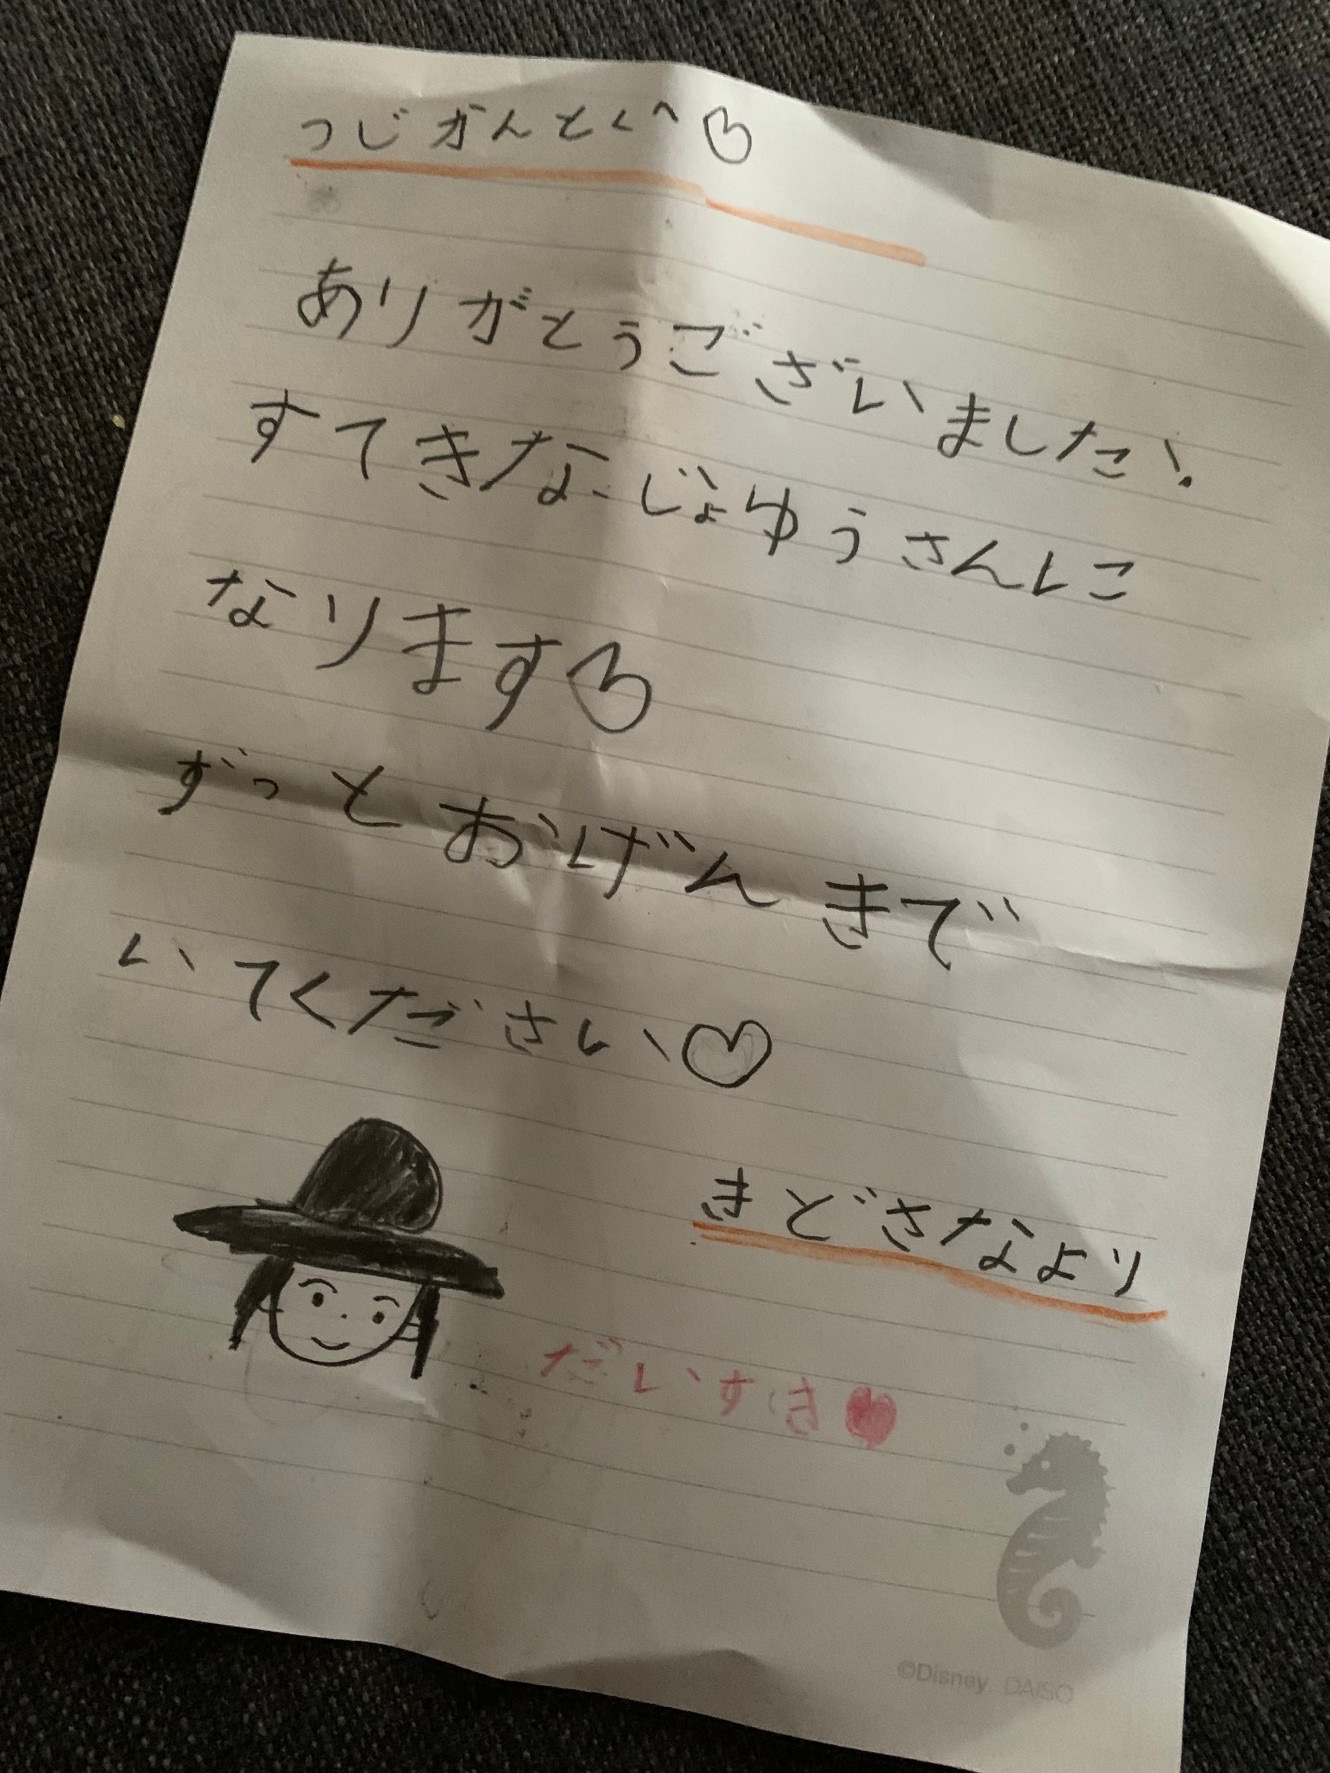 つじかんとくへ♡
ありがとうございました!
すてきなじょゆうさんに
なります♡
ずっとおげんきで
いてください♡
きどさなより
だいすき♥
©Disney DAISO